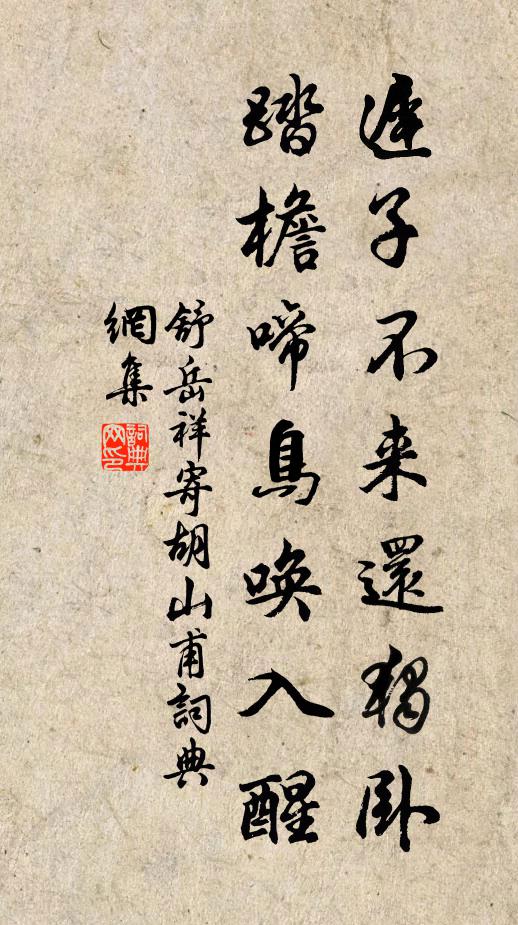 遲子不来還獨卧
踏檐啼鳥唤入醒
舒岳祥寄胡山甫詞典
網集
詞典
网印